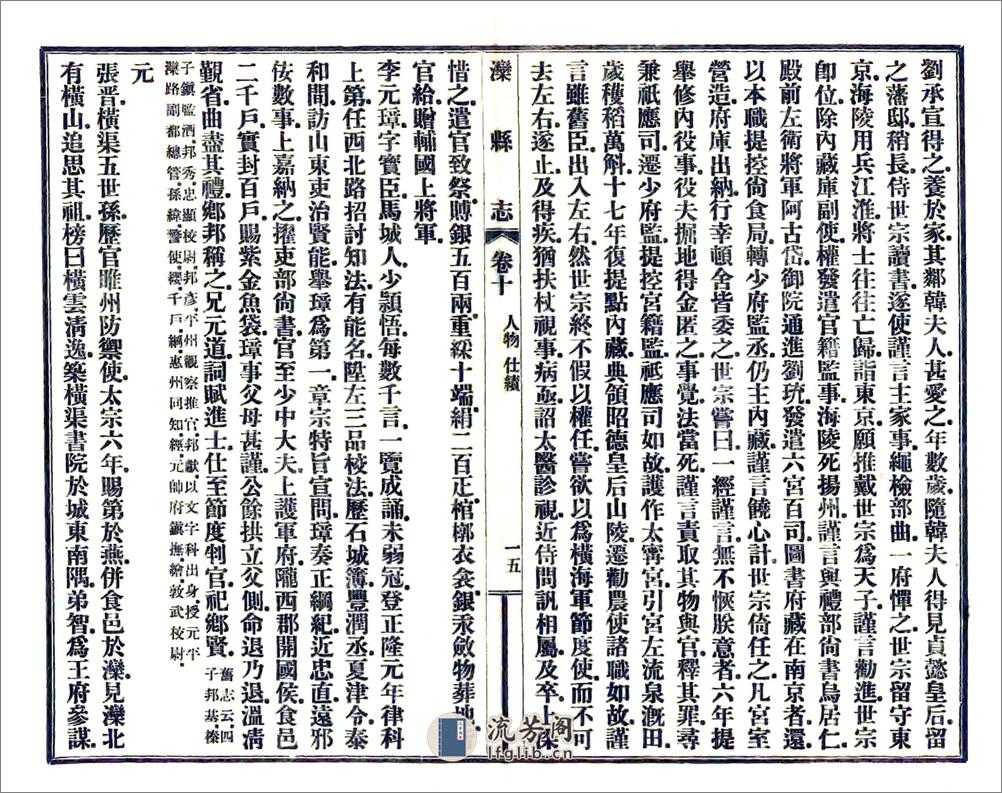 劉承宣得之養於家其鄰韓夫人甚愛之年數歲隨韓夫人得見貞懿皇后留
之藩邸稍長侍世宗讀書遂使謹言主家事繩檢部曲一府憚之世宗留守東
京海陵用兵江淮將士往往亡歸詣東京願推戴世宗爲天子謹言勸進世宗
即位除內藏庫副使權發遣官籍監事海陵死揚州謹言與禮部尚書烏居仁
殿前左衛將軍阿古岱御院通進劉珫發遣六宮百司圖書府藏在南京者還
以本職提控尙食局轉少府監丞仍主內藏謹言饒心計世宗倚任之凡宮室
營造府庫出納行幸頓舍皆委之世宗嘗曰一經謹言無不恢朕意者六年提
舉修內役事役夫掘地得金匿之事覺法當死謹言責取其物與官釋其罪尋
兼祇應司遷少府監提控宮籍監祇應司如故護作太寗宮引宮左流泉漑田
歲穫稻萬斛十七年復提點內藏典領昭德皇后山陵遷勸農使諸職如故謹
言雖舊臣出入左右然世宗終不假以權任嘗欲以爲橫海軍節度使而不可
去左右遂止及得疾猶扶杖視事病亟詔太醫診視近侍問訊相屬及卒上深
灤縣志
卷十
人物 仕績
一五
惜之遣官致祭賻銀五百兩重綵十端絹二百疋棺槨衣衾銀汞斂物葬地
官給贈輔國上將軍
李元璋字寶臣馬城人少頴悟每數千言一覽成誦未弱冠登正隆元年律科
上第任西北路招討知法有能名陞左三品棱法歷石城簿豐潤丞夏津令泰
和間訪山東吏治賢能舉璋爲第一章宗特旨宣問璋奏正綱紀近忠直遠邪
佞數事上嘉納之擢吏部尙書官至少中大夫上護軍府隴西郡開國侯食邑
二千戶實封百戶賜紫金魚袋璋事父母甚謹公餘拱立父側命退乃退溫凊
覲省曲盡其禮鄉邦稱之兄元道詞賦進士仕至節度判官祀鄉賢舊志云四子邦基灤
子鎭監酒邦秀忠顯校尉邦彥平州觀察推官邦獻以文字科出身授元平
灤路副都總管孫緯警使纓千戶綱惠州同知經元帥府鎭撫繪敦武校尉
元
張晋橫渠五世孫歷官睢州防禦使太宗六年賜第於燕併食邑於灤見灤北
有橫山追思其祖榜曰橫雲清逸築橫渠書院於城東南隅弟智爲王府參謀
流芳阁
lfglib.cn